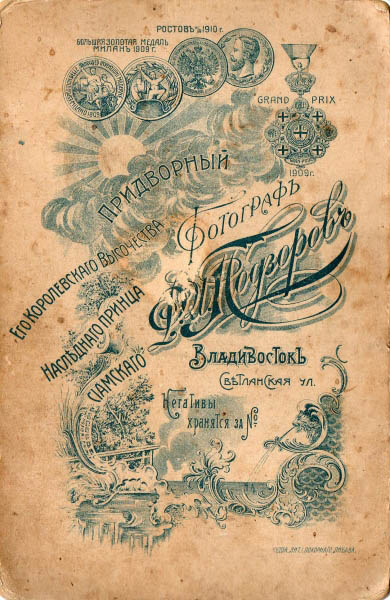 РОСТОВЪ н/Д 1910 г.
БОЛЬШАЯ ЗОЛОТАЯ МЕДАЛЬ
МИЛАНЪ 1909 г.
GRAND PRIX
1909 г.
ПРИДВОРНЫЙ
ФОТОГРАФЪ
ЕГО КОРОЛЕВСКАГО ВЫСОЧЕСТВА
НАСЛѢДНАГО ПРИНЦА
СІАМСКАГО
Подзоровъ
ВЛАДИВОСТОКЪ
СВѢТЛАНСКАЯ УЛ.
Негативы
хранятся за №